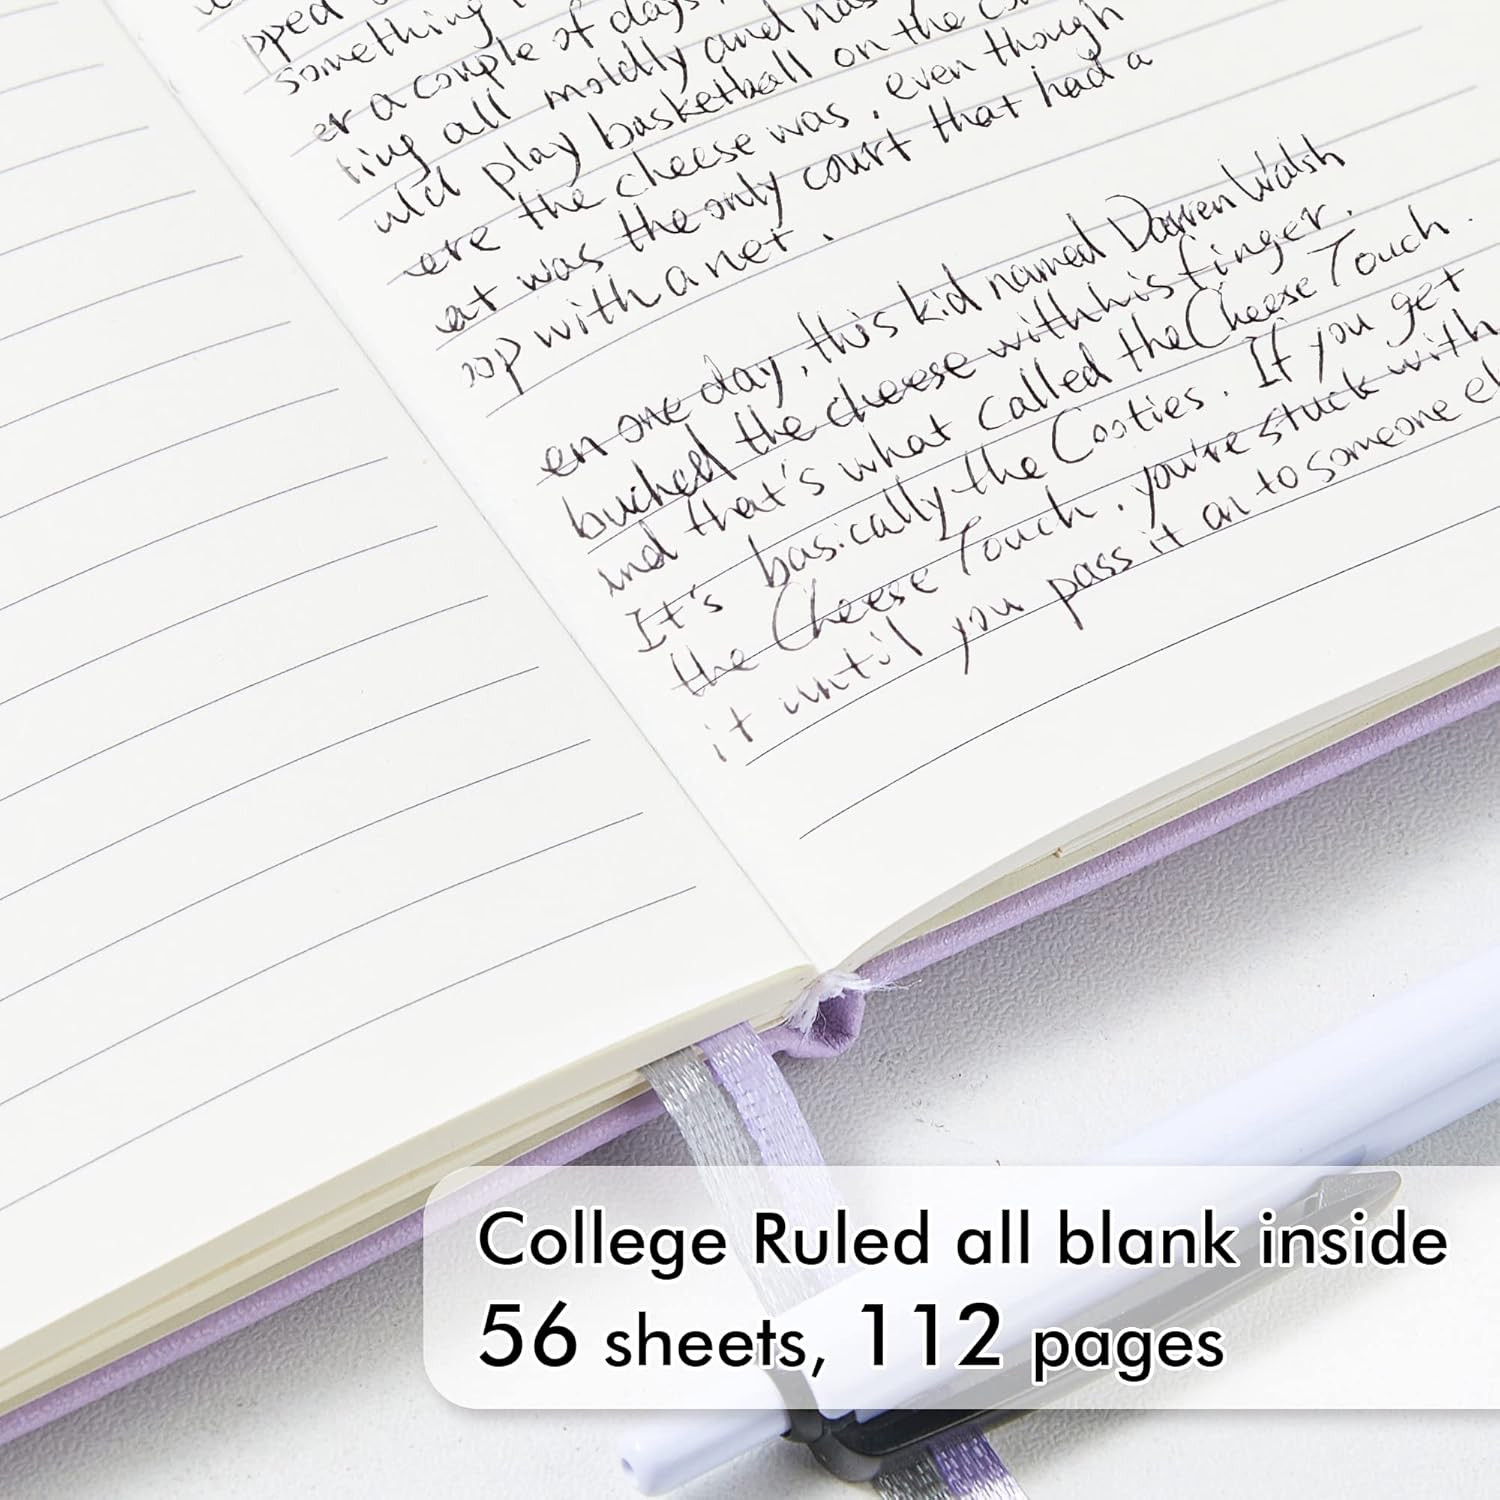 pped
something
er a couple of days,
ting all moldly and nas
uld play basketball on the
ere the cheese was, even though
at was the only court that had a
oop with a net.
en one day, this kid named Darren Walsh
buched the cheese with his finger.
and that's what called the Cheese Touch.
It's basically the Cooties. If you get
the Cheese Touch, you're stuck with
it until you pass it on to someone el
College Ruled all blank inside
56 sheets, 112 pages